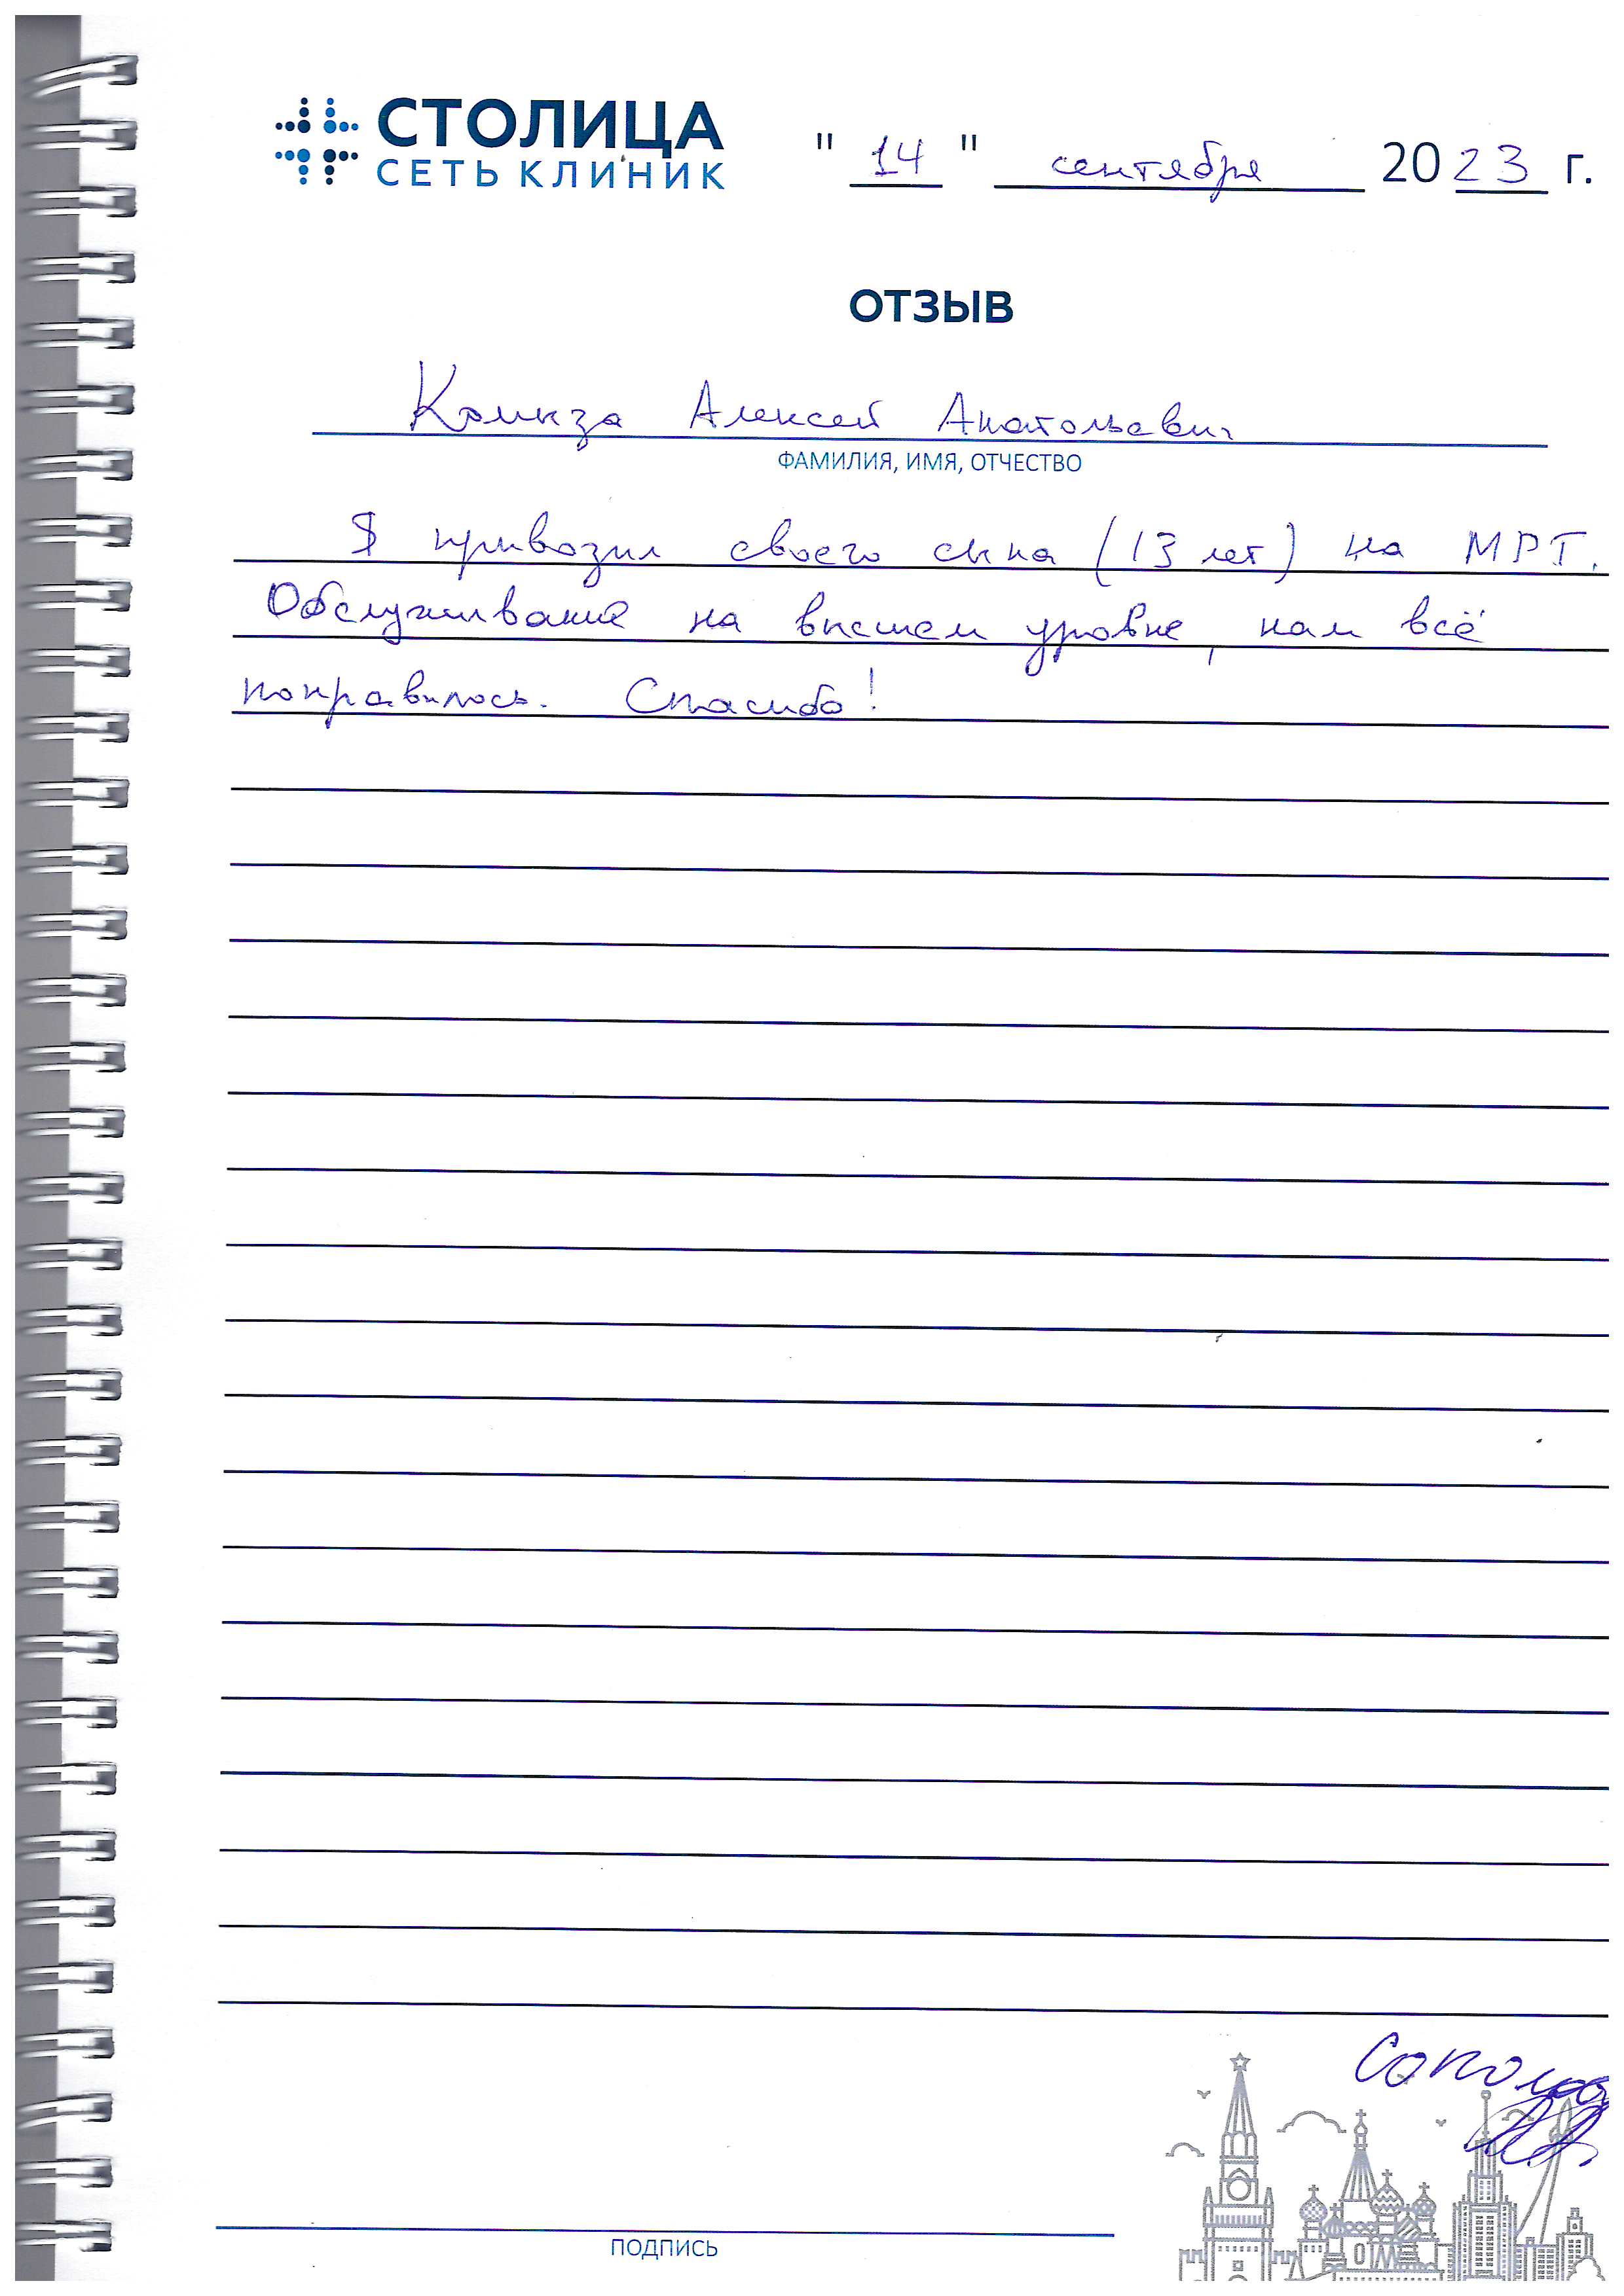 СТОЛИЦА
СЕТЬ КЛИНИК
" 14 " сентября 2023 г.
ОТЗЫВ
Алексей Анатольевич
ФАМИЛИЯ, ИМЯ, ОТЧЕСТВО
Я привозил своего сына (13 лет) на МРТ.
Обслуживание на высшем уровне, нам всё
понравилось. Спасибо!
ПОДПИСЬ